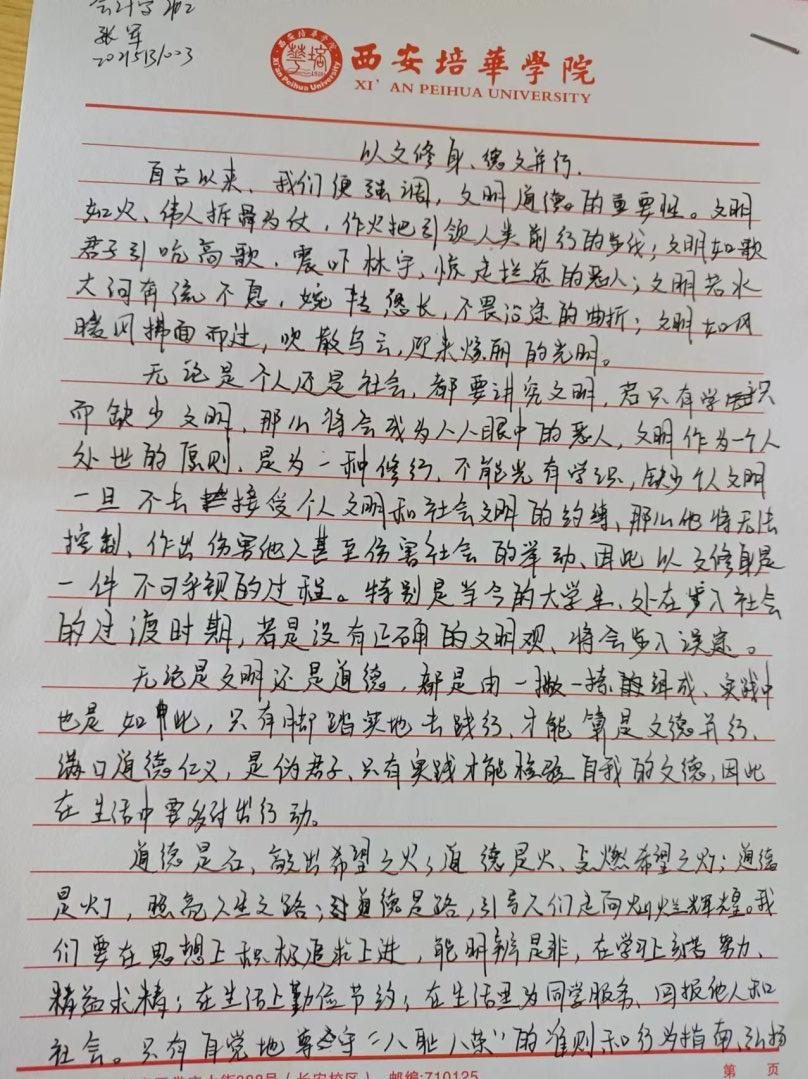 会计学
张军
西安培華學院
XI'AN PEIHUA UNIVERSITY
以文修身、德文并行.
自古以来、我们便强调，文明道德的重要性。文明
如火、伟人拆骨为仗，作火把引领人类前行的步伐；文明如歌
君子引吭高歌，震吓林宇，惊走拦途的恶人；文明若水
大河奔流不息，婉转悠长，不畏沿途的曲折；文明如风
暖风拂面而过，吹散乌云，迎来炼丽的光明。
无论是个人还是社会，都要讲究文明，若只有学识
而缺少文明，那么将会成为人人眼中的恶人，文明作为一个人
处世的原则、是为一种修行、不能光有学识，缺少个人文明
一旦不去接受个人文明和社会文明的约缚、那么他将无法
控制、作出伤害他人甚至伤害社会的举动、因此以文修身是
一件不可乎视的过程。特别是当今的大学生、处在步入社会
的过渡时期，若是没有正确的文明观、将会步入误途。
无论是文明还是道德，都是由一撇一捺组成、实践中
也是如此，只有脚踏实地去践行、才能算是文德并行、
满口道德仁义，是伪君子、只有实践才能检验自我的文德，因此
在生活中要多付出行动。
道德是石，敲出希望之火；道德是火、点燃希望之灯；道德
是灯，照亮人生之路；道德是路，引导人们走向灿烂辉煌。我
们要在思想上积极追求上进，能明辨是非，在学习上刻苦努力、
精益求精；在生活上勤俭节约；在生活里为同学服务、回报他人和
社会。只有自觉地尊守“八耻八荣”的准则和行为指南、弘扬
（长安校区） 邮编:710125 第 页